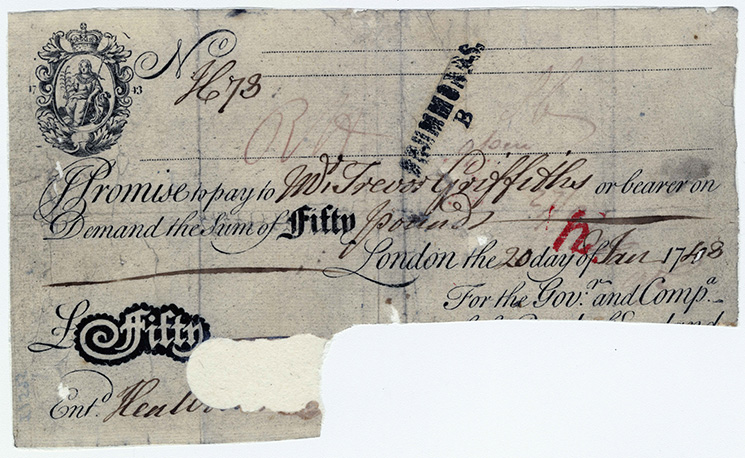 No
H 73
17 43
DRUMMONDS
B
I Promise to pay to Mr Trevor Griffiths or bearer on
Demand the Sum of Fifty pounds
London the 20 day of Jan 17
For the Govr. and Compa.
£ Fifty
Entd.